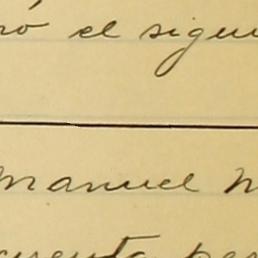 ró el sigui
Manuel M
cuenta per